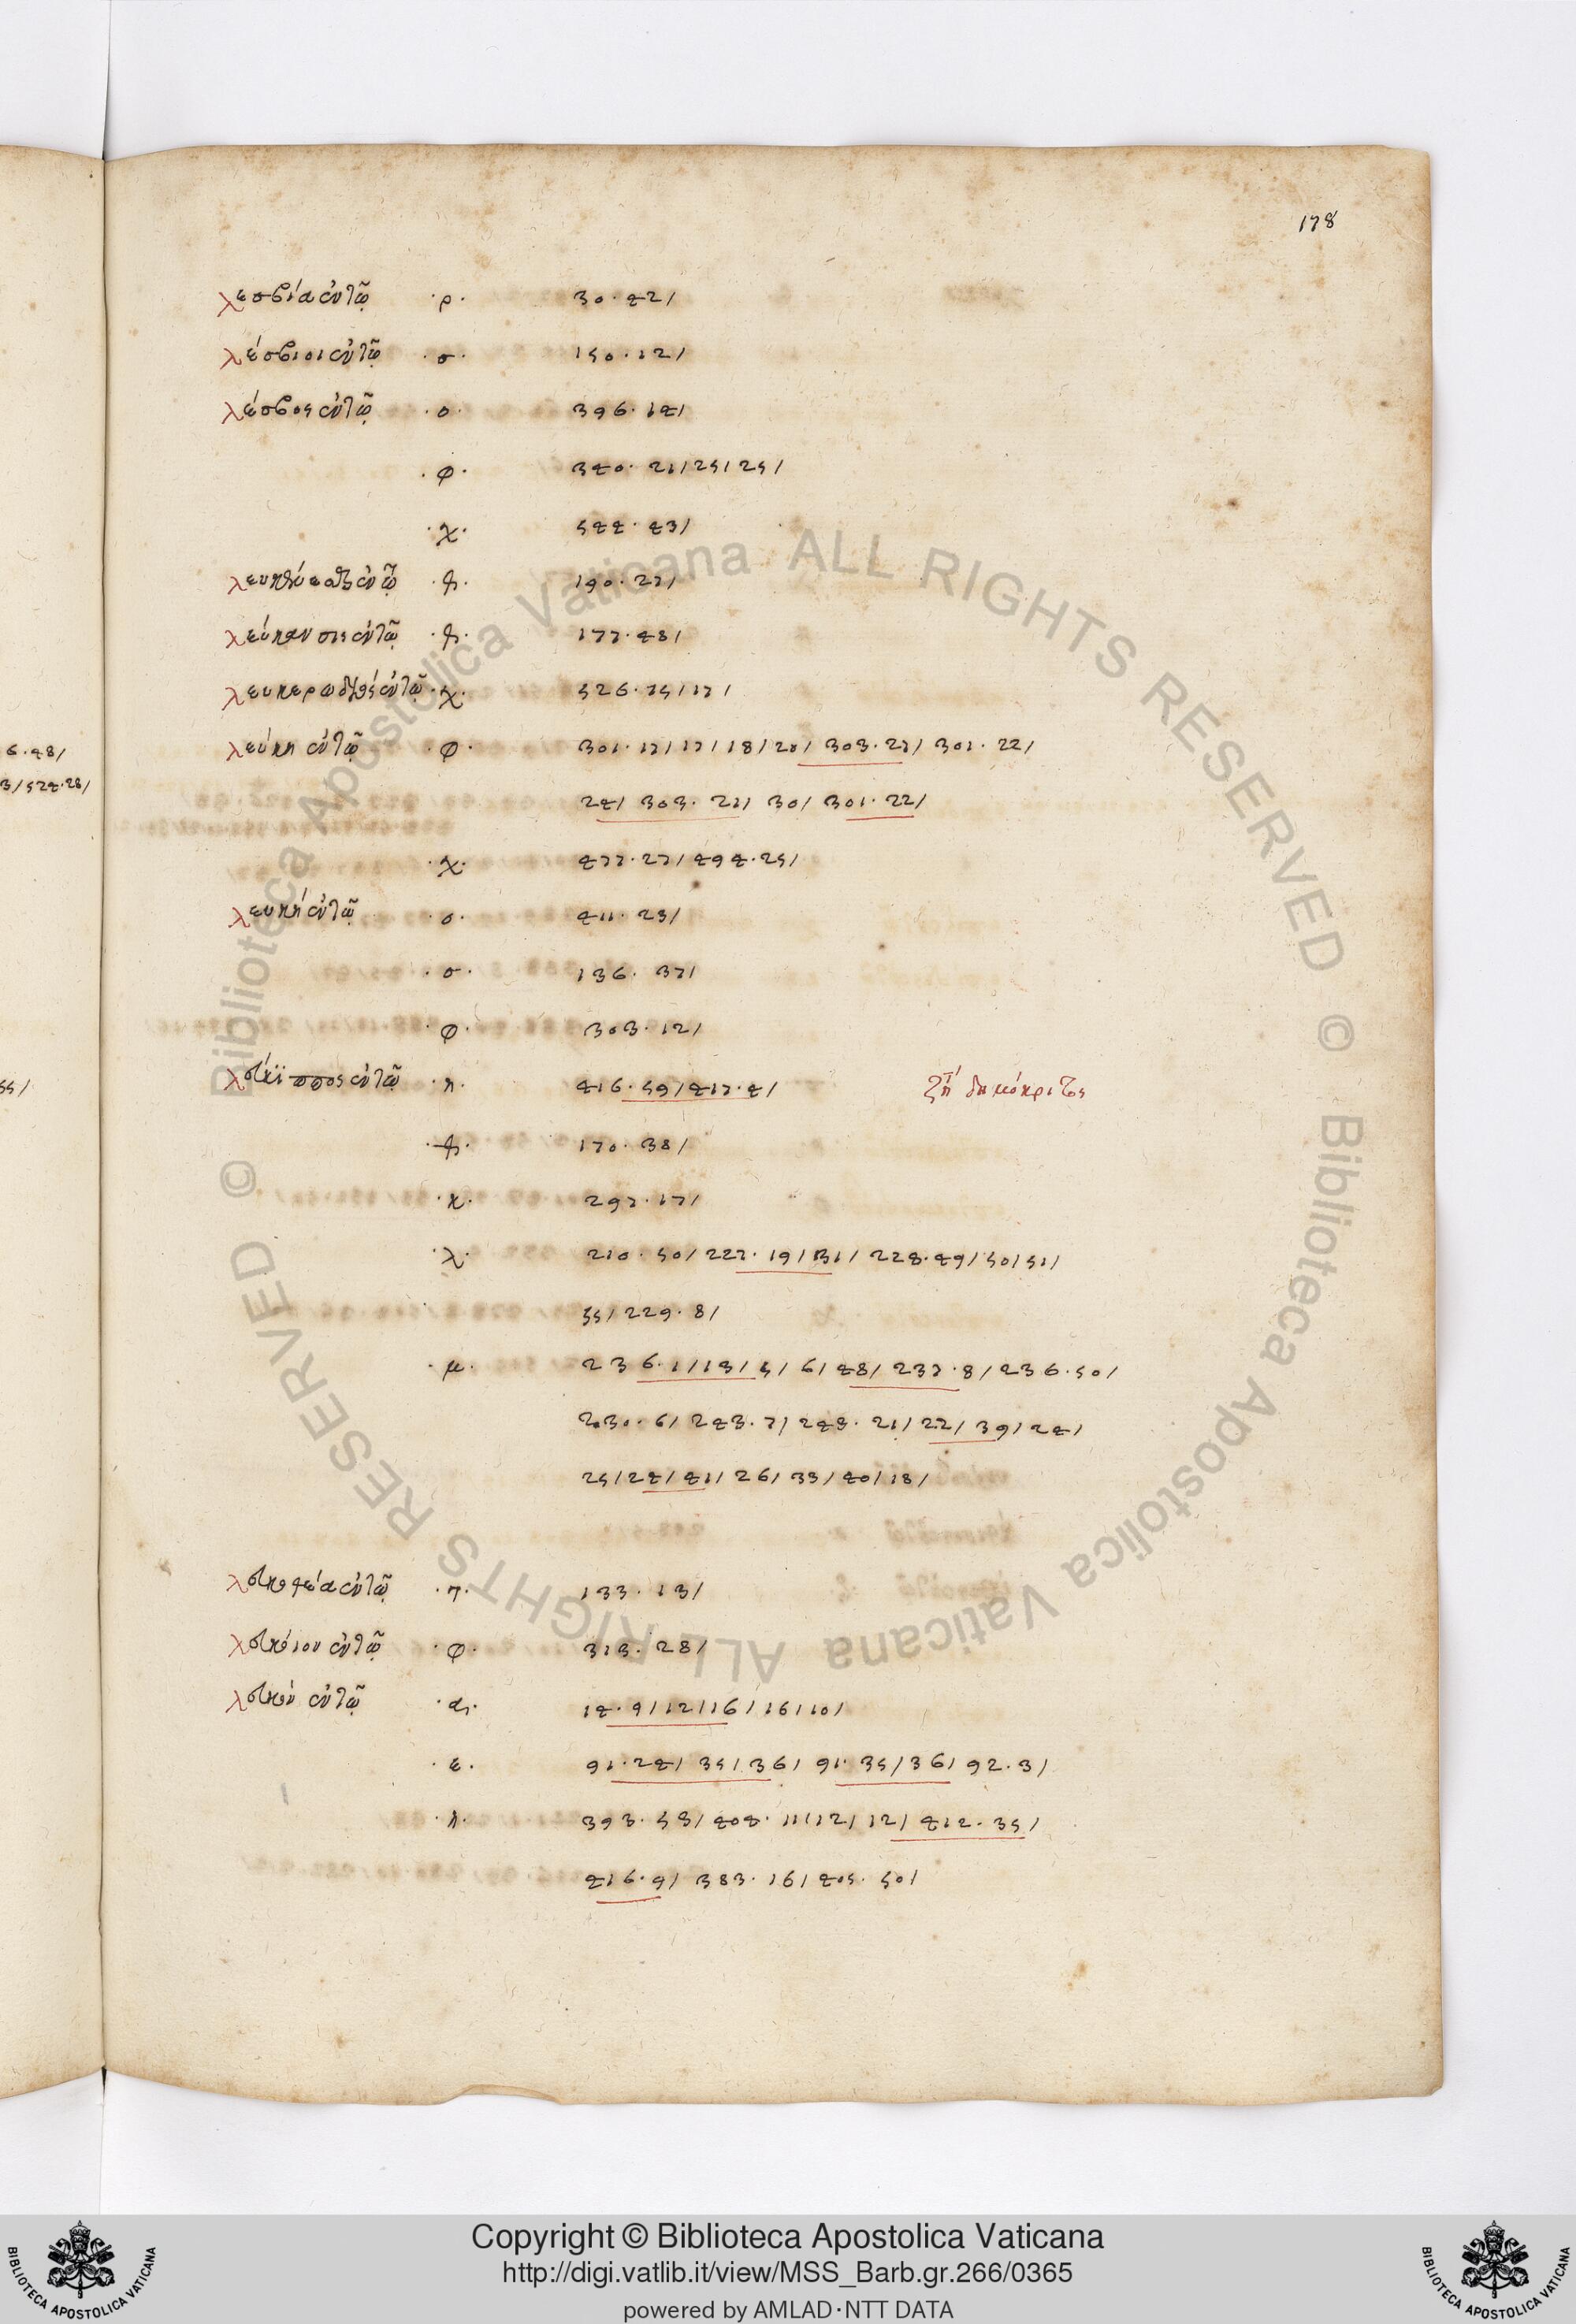 178
λεσβία ἐν τῷ ·ρ· 30·42/
λέσβιοι ἐν τῷ ·σ· 150·12/
λέσβος ἐν τῷ ·ο· 396·14/
·φ· 340·21/25/25/
·χ· 544·43/
ἐν τῷ 190·27/
λεύκανσις ἐν τῷ 177·48/
ἐν τῷ ·χ· 526·15/17/
λεύκη ἐν τῷ ·φ· 301·17/17/18/20/ 303·27/ 301·22/
24/ 303·21/ 30/ 301·22/
·χ· 477·27/494·25/
λευκή ἐν τῷ ·ο· 411·23/
·σ· 136·37/
·φ· 303·12/
λεύκιππος ἐν τῷ ·η· 416·59/417·4/ ζτ δημόκριτος
170·38/
·κ· 297·17/
·λ· 210·50/227·19/31/228·49/50/51/
55/229·8/
·μ· 236·1/13/5/6/48/237·8/236·50/
230·6/243·7/243·21/22/39/24/
25/24/41/26/33/40/18/
ἐν τῷ ·π· 133·13/
ἐν τῷ ·φ· 313·28/
λευκόν ἐν τῷ ·α· 14·9/12/16/16/10/
·ε· 91·24/35/36/91·35/36/92·3/
·η· 393·53/404·11/12/12/412·35/
416·9/383·16/405·50/
6·48/
3/524·28/
55/
Biblioteca Apostolica Vaticana ALL RIGHTS RESERVED ©
Biblioteca Apostolica Vaticana ALL RIGHTS RESERVED ©
BIBLIOTECA APOSTOLICA VATICANA
Copyright © Biblioteca Apostolica Vaticana
http://digi.vatlib.it/view/MSS_Barb.gr.266/0365
powered by AMLAD·NTT DATA
BIBLIOTECA APOSTOLICA VATICANA